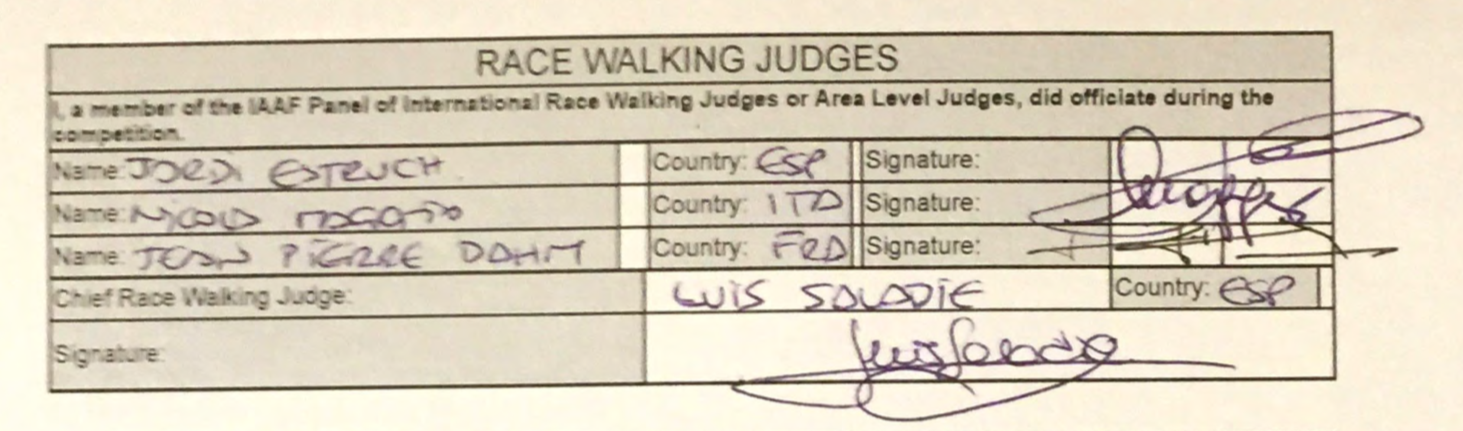 RACE WALKING JUDGES
I, a member of the IAAF Panel of International Race Walking Judges or Area Level Judges, did officiate during the
competition.
Name: JORDI ESTRUCH Country: ESP Signature:
Name: NICOLA MAGGIO Country: ITA Signature:
Name: JEAN PIERRE DAHM Country: FRA Signature:
Chief Race Walking Judge: LUIS SALADIE Country: ESP
Signature: Luis Saladie